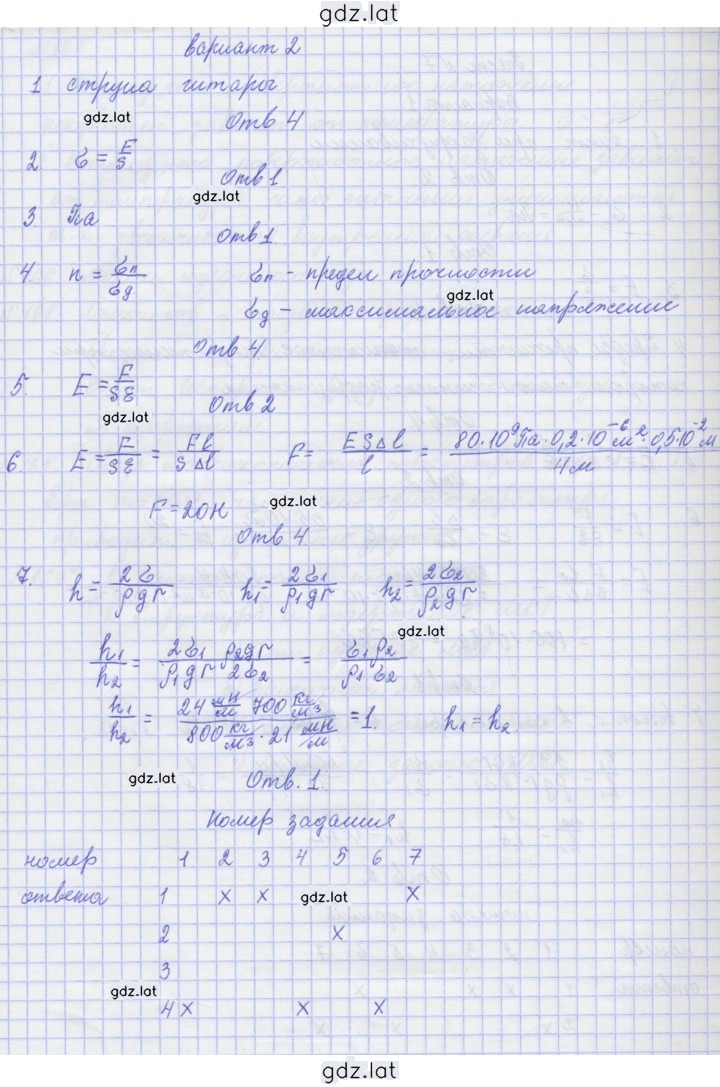 gdz.lat
Вариант 2
1 струна гитары
gdz.lat
Отв 4
2 σ = F/S
Отв 1
gdz.lat
3 Па
Отв 1
4. n = σп/σд σп - предел прочности
gdz.lat
σд - максимальное напряжение
Отв 4
5. E = F/Sε
Отв 2
gdz.lat
6 E = F/Sε = Fl/SΔl F = ESΔl/l = 80·10⁹Па·0,2·10⁻⁶м²·0,5·10⁻²м/4м
gdz.lat
F = 20Н
Отв 4
7. h = 2σ/ρgr h₁ = 2σ₁/ρ₁gr h₂ = 2σ₂/ρ₂gr
gdz.lat
h₁/h₂ = 2σ₁/ρ₁gr ρ₂gr/2σ₂ = σ₁ρ₂/ρ₁σ₂
h₁/h₂ = 24 мН/м 700 кг/м³ / 800 кг/м³ · 21 мН/м = 1. h₁ = h₂
gdz.lat
Отв. 1.
Номер задания
номер 1 2 3 4 5 6 7
ответа 1 x x gdz.lat x
2 x
3
gdz.lat
4 x x x
gdz.lat